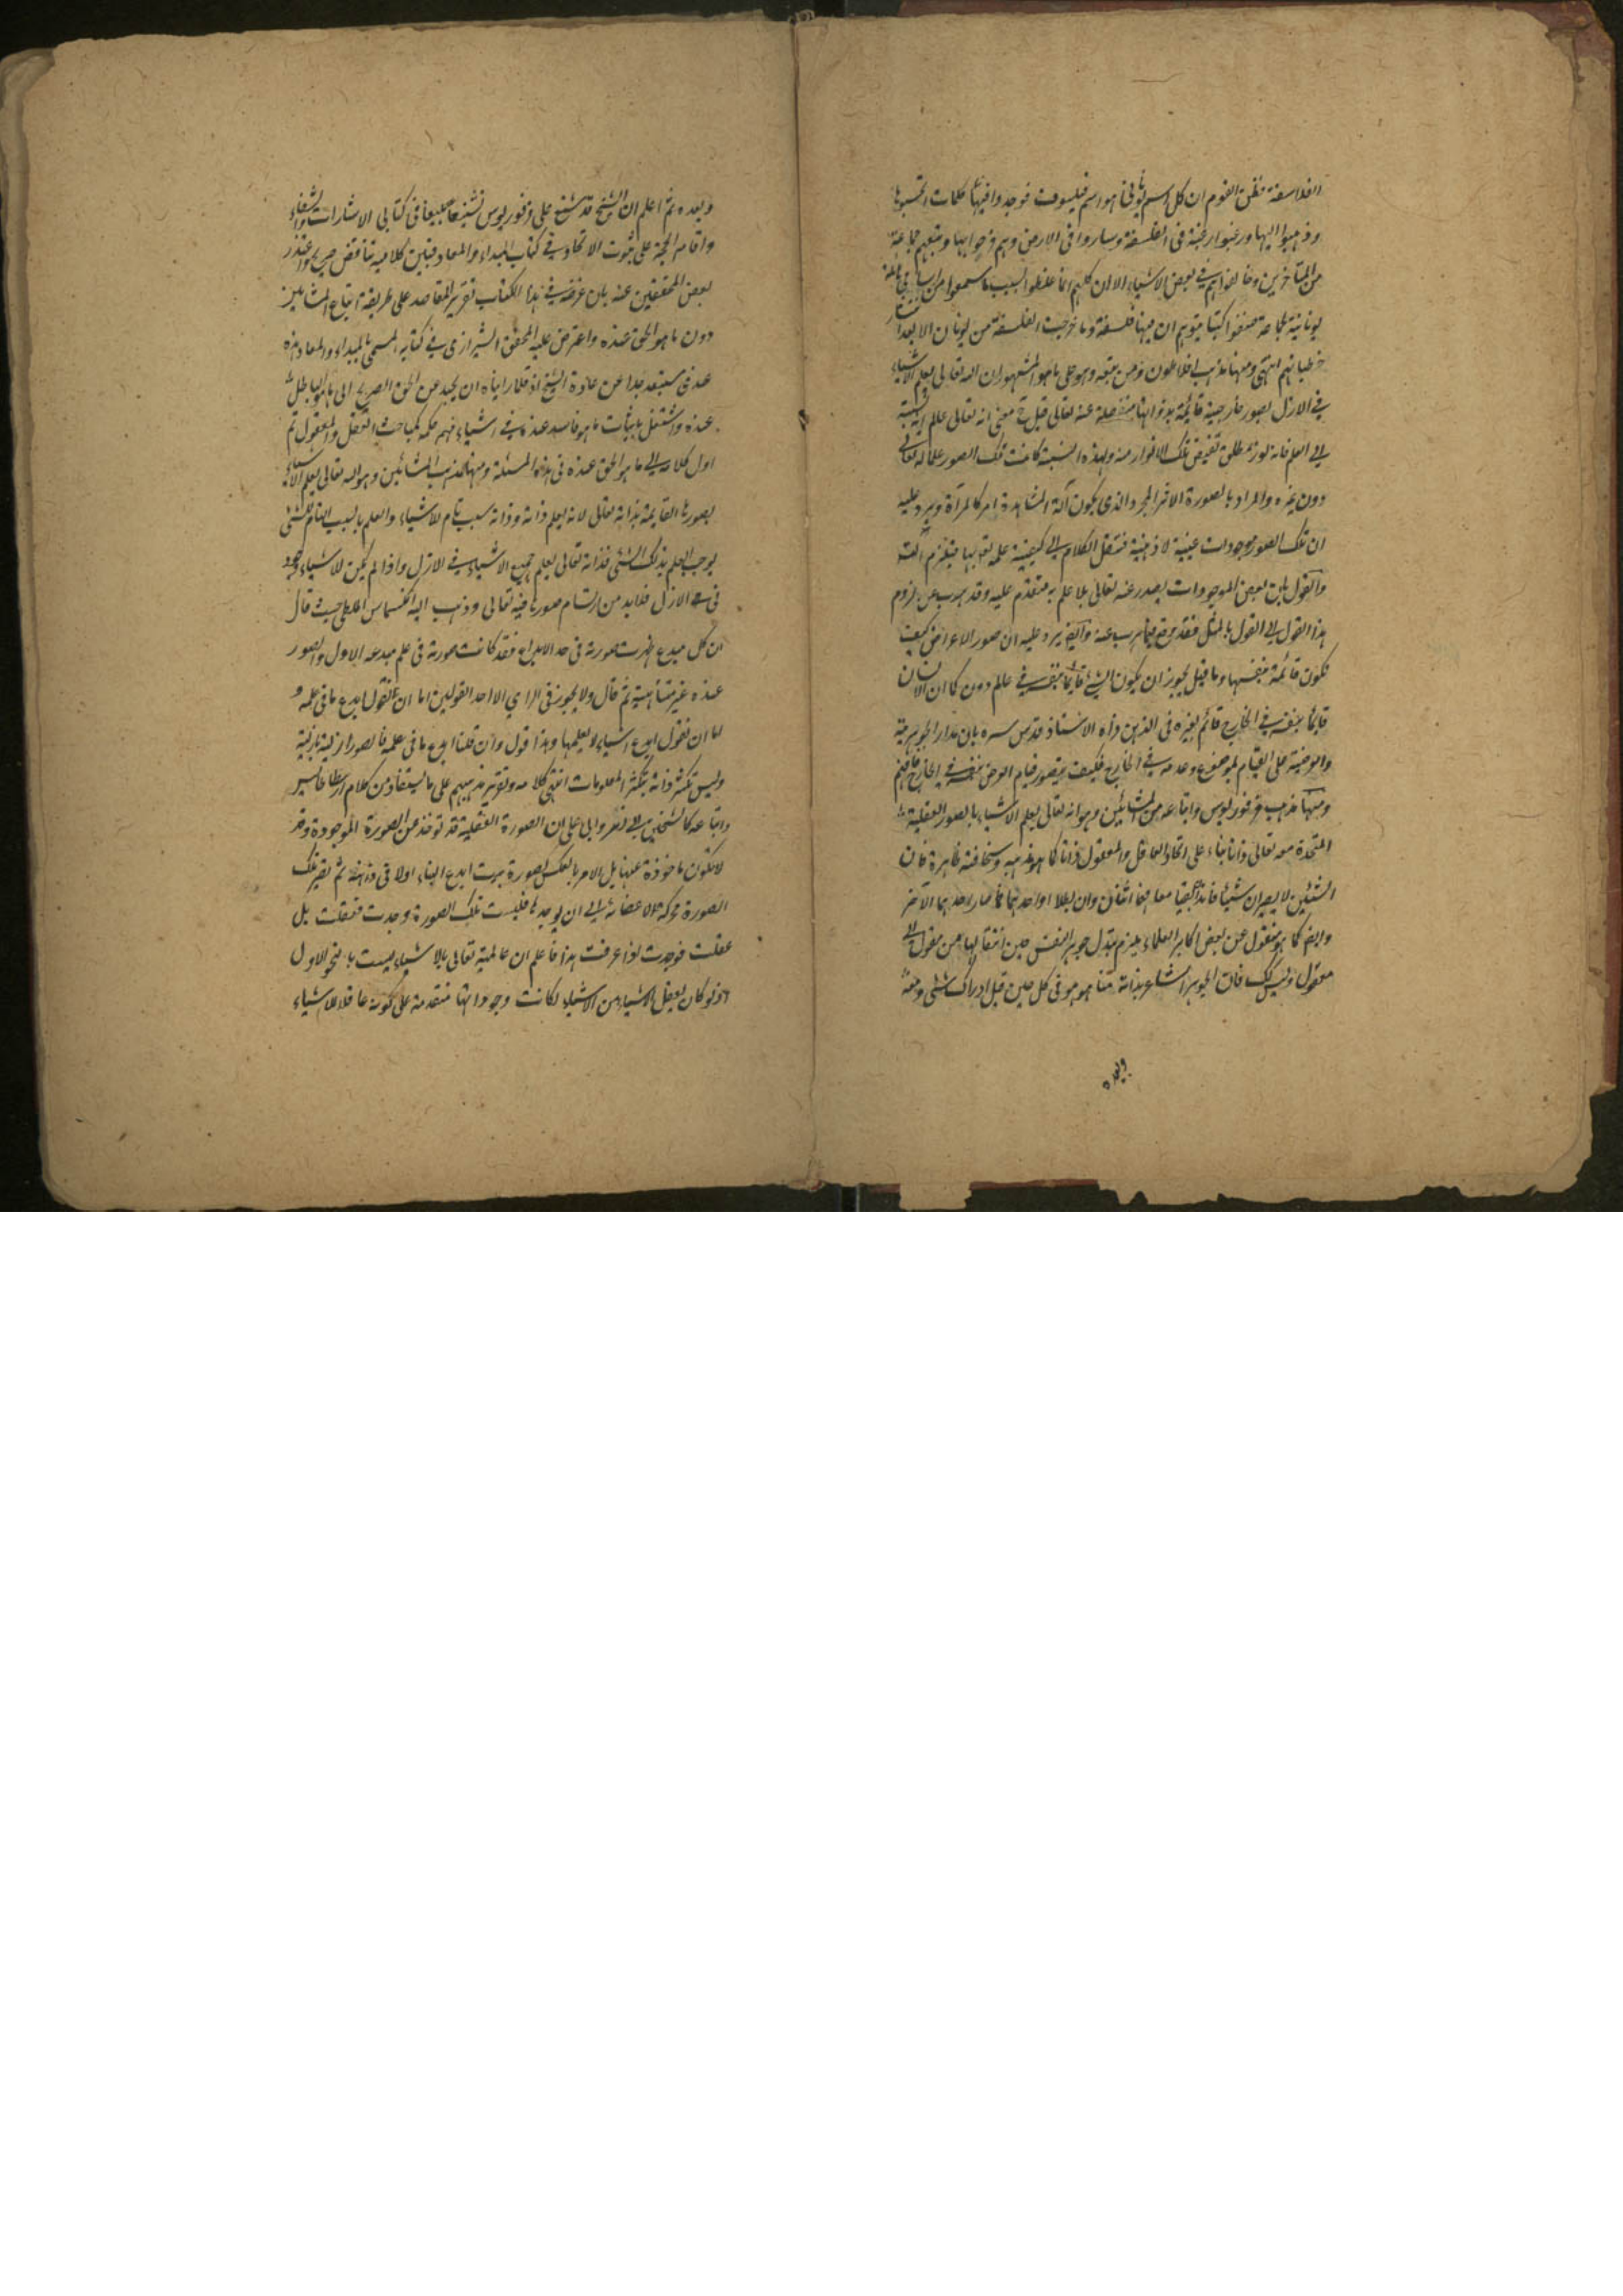 الفلاسفة فظن القوم ان كل اسم يوناني هو اسم فيلسوف فوجدوا فيها كلمات تحسبوها
وذهبوا اليها ورغبوا رغبة في الفلسفة وساروا في الارض وهم فرحوا بها وتبعهم جماعة
من المتأخرين وخالفواهم في بعض الاشياء الا ان كلهم انما غلطوا بسبب ما سمعوا من اسامي
يونانية لجماعة صنفوا كتبا يتوهم ان فيها فلسفة وما خرجت الفلسفة من يونان الا بعد انتشار
خطبائهم انتهى ومنها مذهب افلاطون ومن تبعه وهو على ما هو المشهور ان الله تعالى يعلم الاشياء
في الازل بصور خارجية قائمة بذواتها منفصلة عنه تعالى قيل معنى انه تعالى علم انه نسبة
الى العلم فانه نور مطلق تفيض تلك الانوار منه وبهذه النسبة كانت تلك الصور علما له تعالى
دون غيره والمراد بالصورة الامر المجرد الذي يكون آلة المشاهدة امر كالمرآة ويرد عليه
ان تلك الصور موجودات عينية لا ذهنية فننقل الكلام الى كيفية علمه تعالى بها فيلزم التسلسل
والقول بان بعض الموجودات يصدر عنه تعالى بلا علم به متقدم عليه وقد هرب عن لزوم
هذا القول الى القول بالمثل فقد وقع فيما هرب عنه وايضا يرد عليه ان صور الاعراض كيف
تكون قائمة بنفسها وما قيل يجوز ان يكون الشئ قائما بنفسه في عالم دون كما ان الانسان
قائما بنفسه في الخارج قائم بغيره في الذهن رده الاستاذ قدس سره بان مدار الجوهرية
والعرضية على القيام بالموضوع وعدمه في الخارج فكيف يتصور قيام العرض بنفسه في الخارج فافهم
ومنها مذهب فرفوريوس واتباعه من المشائين وهو انه تعالى يعلم الاشياء بالصور العقلية
المتحدة معه تعالى ذاتا بناء على اتحاد العاقل والمعقول ذاتا كما هو مذهبه وسخافته ظاهرة فان
الشيئين لا يصيران شيئا فانه ان بقيا معا فهما اثنان وان بطلا او احدهما فما صار احدهما الآخر
وايضا كما هو منقول عن بعض اكابر العلماء يلزم تبدل جوهر النفس حين انتقالها من معقول الى
معقول وليس كذلك فان الجوهر الشاعر بذاته منا هو هو في كل حين قبل ادراك شئ ومعه
وبعده
وبعده ثم اعلم ان الشيخ قد شنع على فرفوريوس تشنيعا بليغا في كتابي الاشارات والشفاء
واقام الحجة على ثبوت الاتحاد في كتاب المبداء والمعاد فبين كلاميه تناقض صريح واعتذر
بعض المحققين عنه بان غرضه في هذا الكتاب تقرير المقاصد على طريقة اتباع المشائين
دون ما هو الحق عنده واعترض عليه المحقق الشيرازي في كتابه المسمى بالمبداء والمعاد بانه
عندي مستبعد جدا عن عادة الشيخ اذ قلما رايناه ان يحيد عن الحق الصريح الى ما هو الباطل
عنده واشتغل باثبات ما هو فاسد عنده في اشياء مهمة حكمة كمباحث العقل والمعقول ثم
اول كلامه الى ما هو الحق عنده في هذه المسئلة ومنها مذهب المشائين وهو الله تعالى يعلم الاشياء
بصورها القائمة بذاته تعالى لانه يعلم ذاته وذاته سبب تام للاشياء والعلم بالسبب التام للشئ
يوجب العلم بذلك الشئ فذاته تعالى يعلم جميع الاشياء في الازل واذا لم يكن للاشياء وجود
في الازل فلا بد من ارتسام صورها فيه تعالى وذهب اليه انكسماس الملطي حيث قال
ان كل مبدع ظهرت صورته في حد الابداع فقد كانت صورته في علم مبدعه الاول والصور
عنده غير متناهية ثم قال ولا يجوز في الراي الا احد القولين اما ان نقول ابدع ما في علمه و
اما ان نقول ابدع اشياء لا يعلمها وهذا قول وان قلنا ابدع ما في علمه فالصور ازلية بازلية
وليس تتكثر ذاته بتكثر المعلومات انتهى كلامه وتقرير مذهبهم على ما يستفاد من كلام ارسطاطاليس
واتباعه كالشيخين ابي نصر وابي علي ان الصورة العقلية قد توخذ عن الصورة الموجودة وقد
لا تكون ماخوذة عنها بل الامر بالعكس كصورة بيت ابدع البناء اولا في ذهنه ثم تصير تلك
الصورة محركة لاعضائه الى ان يوجدها فليست تلك الصورة وجدت فعقلت بل
عقلت فوجدت اذا عرفت هذا فاعلم ان عالميته تعالى بالاشياء ليست بالنحو الاول
اذ لو كان يعقل الاشياء من الاشياء لكانت وجوداتها متقدمة على كونه عاقلا للاشياء